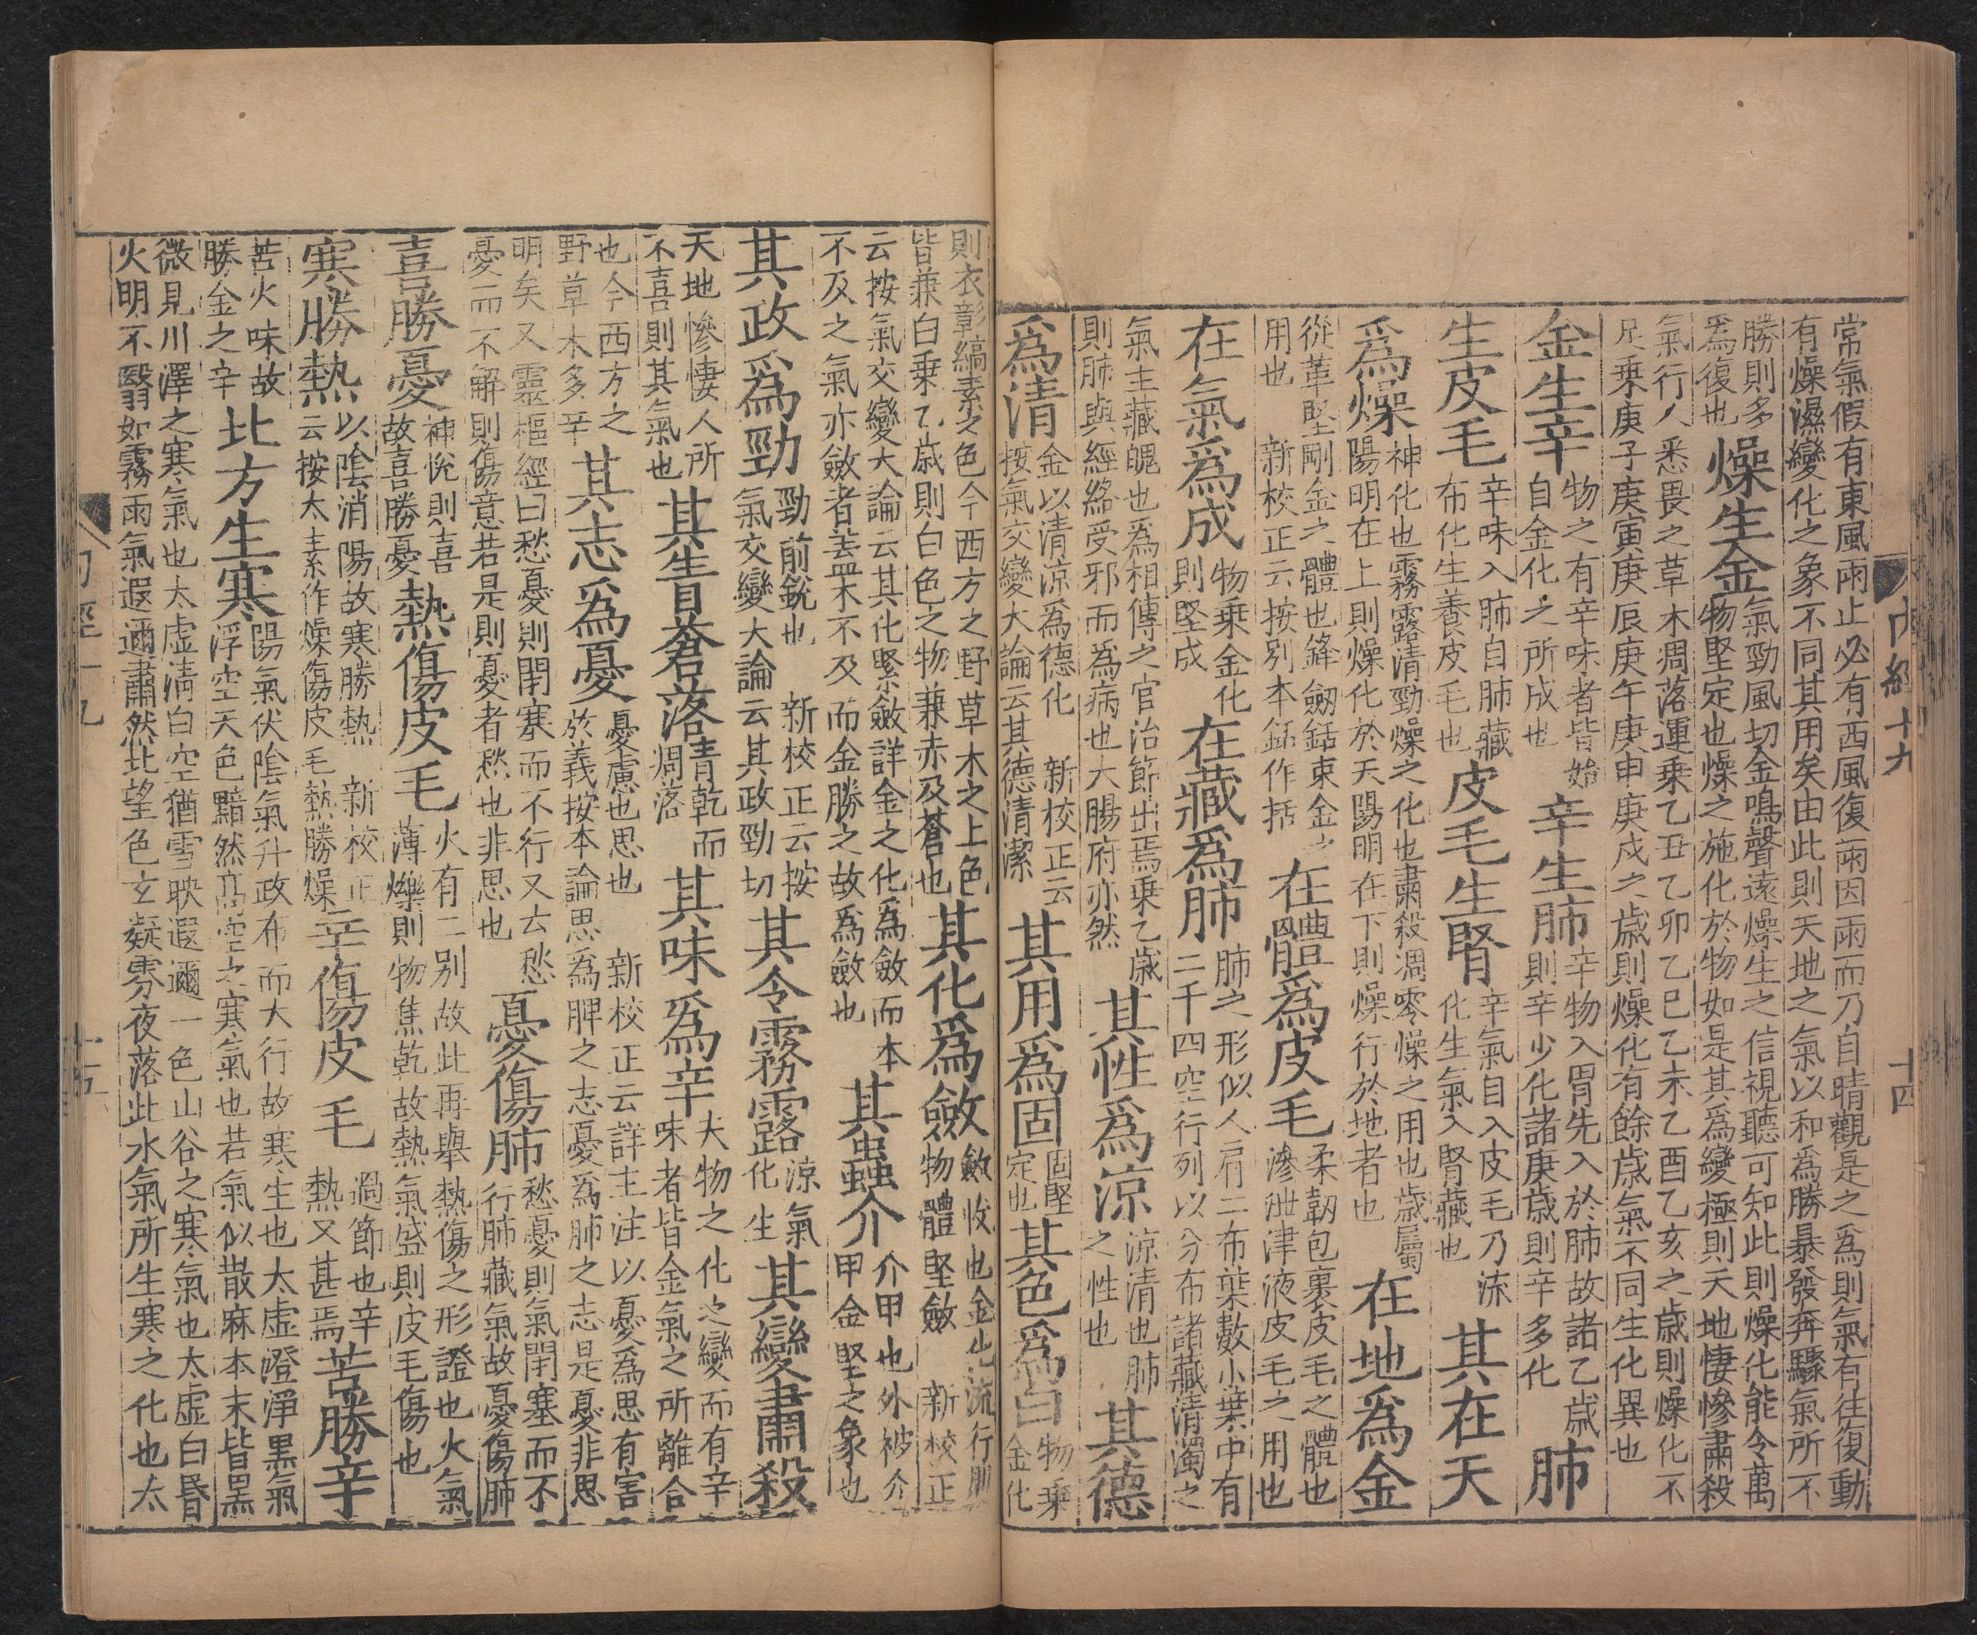 常氣假有東風雨止必有西風復雨因雨而乃自晴觀是之爲則氣有往復動
有燥濕變化之象不同其用矣由此則天地之氣以和爲勝暴發奔驟氣所不
勝則多爲復也燥生金氣勁風切金鳴聲遠燥生之信視聽可知此則燥化能令萬物堅定也燥之施化於物如是其爲變極則天地悽慘肅殺
氣行人悉畏之草木凋落運乘乙丑乙卯乙巳乙未乙酉乙亥之歲則燥化不
足乘庚子庚寅庚辰庚午庚申庚戌之歲則燥化有餘歲氣不同生化異也
金生辛物之有辛味者皆始自金化之所成也辛生肺辛物入胃先入於肺故諸乙歲則辛少化諸庚歲則辛多化肺
生皮毛辛味入肺自肺藏布化生養皮毛也皮毛生腎辛氣自入皮毛乃流化生氣入腎藏也其在天
爲燥神化也霧露清勁燥之化也肅殺凋零燥之用也歲屬陽明在上則燥化於天陽明在下則燥行於地者也在地爲金
從革堅剛金之體也鋒劒銛束金之用也 新校正云按別本銛作括在體爲皮毛柔韌包裹皮毛之體也滲泄津液皮毛之用也
在氣爲成物乘金化則堅成在藏爲肺肺之形似人肩二布葉數小葉中有二十四空行列以分布諸藏清濁之
氣主藏魄也爲相傳之官治節出焉乘乙歲則肺與經絡受邪而爲病也大腸府亦然其性爲涼涼清也肺之性也其德
爲清金以清涼爲德化 新校正云按氣交變大論云其德清潔其用爲固固堅定也其色爲白物乘金化
內經十九
十四
則衣彰縞素之色今西方之野草木之上色皆兼白乘乙歲則白色之物兼赤及蒼也其化爲斂斂收也金化流行則物體堅斂 新校正
云按氣交變大論云其化緊斂詳金之化爲斂而本不及之氣亦斂者蓋木不及而金勝之故爲斂也其蟲介介甲也外被介甲金堅之象也
其政爲勁勁前銳也 新校正云按氣交變大論云其政勁切其令霧露涼氣化生其變肅殺
天地慘悽人所不喜則其氣也其眚蒼落青乾而凋落其味爲辛夫物之化之變而有辛味者皆金氣之所離合
也今西方之野草木多辛其志爲憂憂慮也思也 新校正云詳王注以憂爲思有害於義按本論思爲脾之志憂爲肺之志是憂非思
明矣又靈樞經曰愁憂則閉塞而不行又云愁憂而不解則傷意若是則憂者愁也非思也憂傷肺愁憂則氣閉塞而不行肺藏氣故憂傷肺
喜勝憂神悅則喜故喜勝憂熱傷皮毛火有二別故此再舉熱傷之形證也火氣薄爍則物焦乾故熱氣盛則皮毛傷也
寒勝熱以陰消陽故寒勝熱 新校正云按太素作燥傷皮毛熱勝燥辛傷皮毛過節也辛熱又甚焉苦勝辛
苦火味故勝金之辛北方生寒陽氣伏陰氣升政布而大行故寒生也太虛澄淨黑氣浮空天色黯然高空之寒氣也若氣似散麻本末皆黑
微見川澤之寒氣也太虛清白空猶雪映遐邇一色山谷之寒氣也太虛白昏
火明不翳如霧雨氣遐邇肅然北望色玄凝雰夜落此水氣所生寒之化也太
內經十九
十五